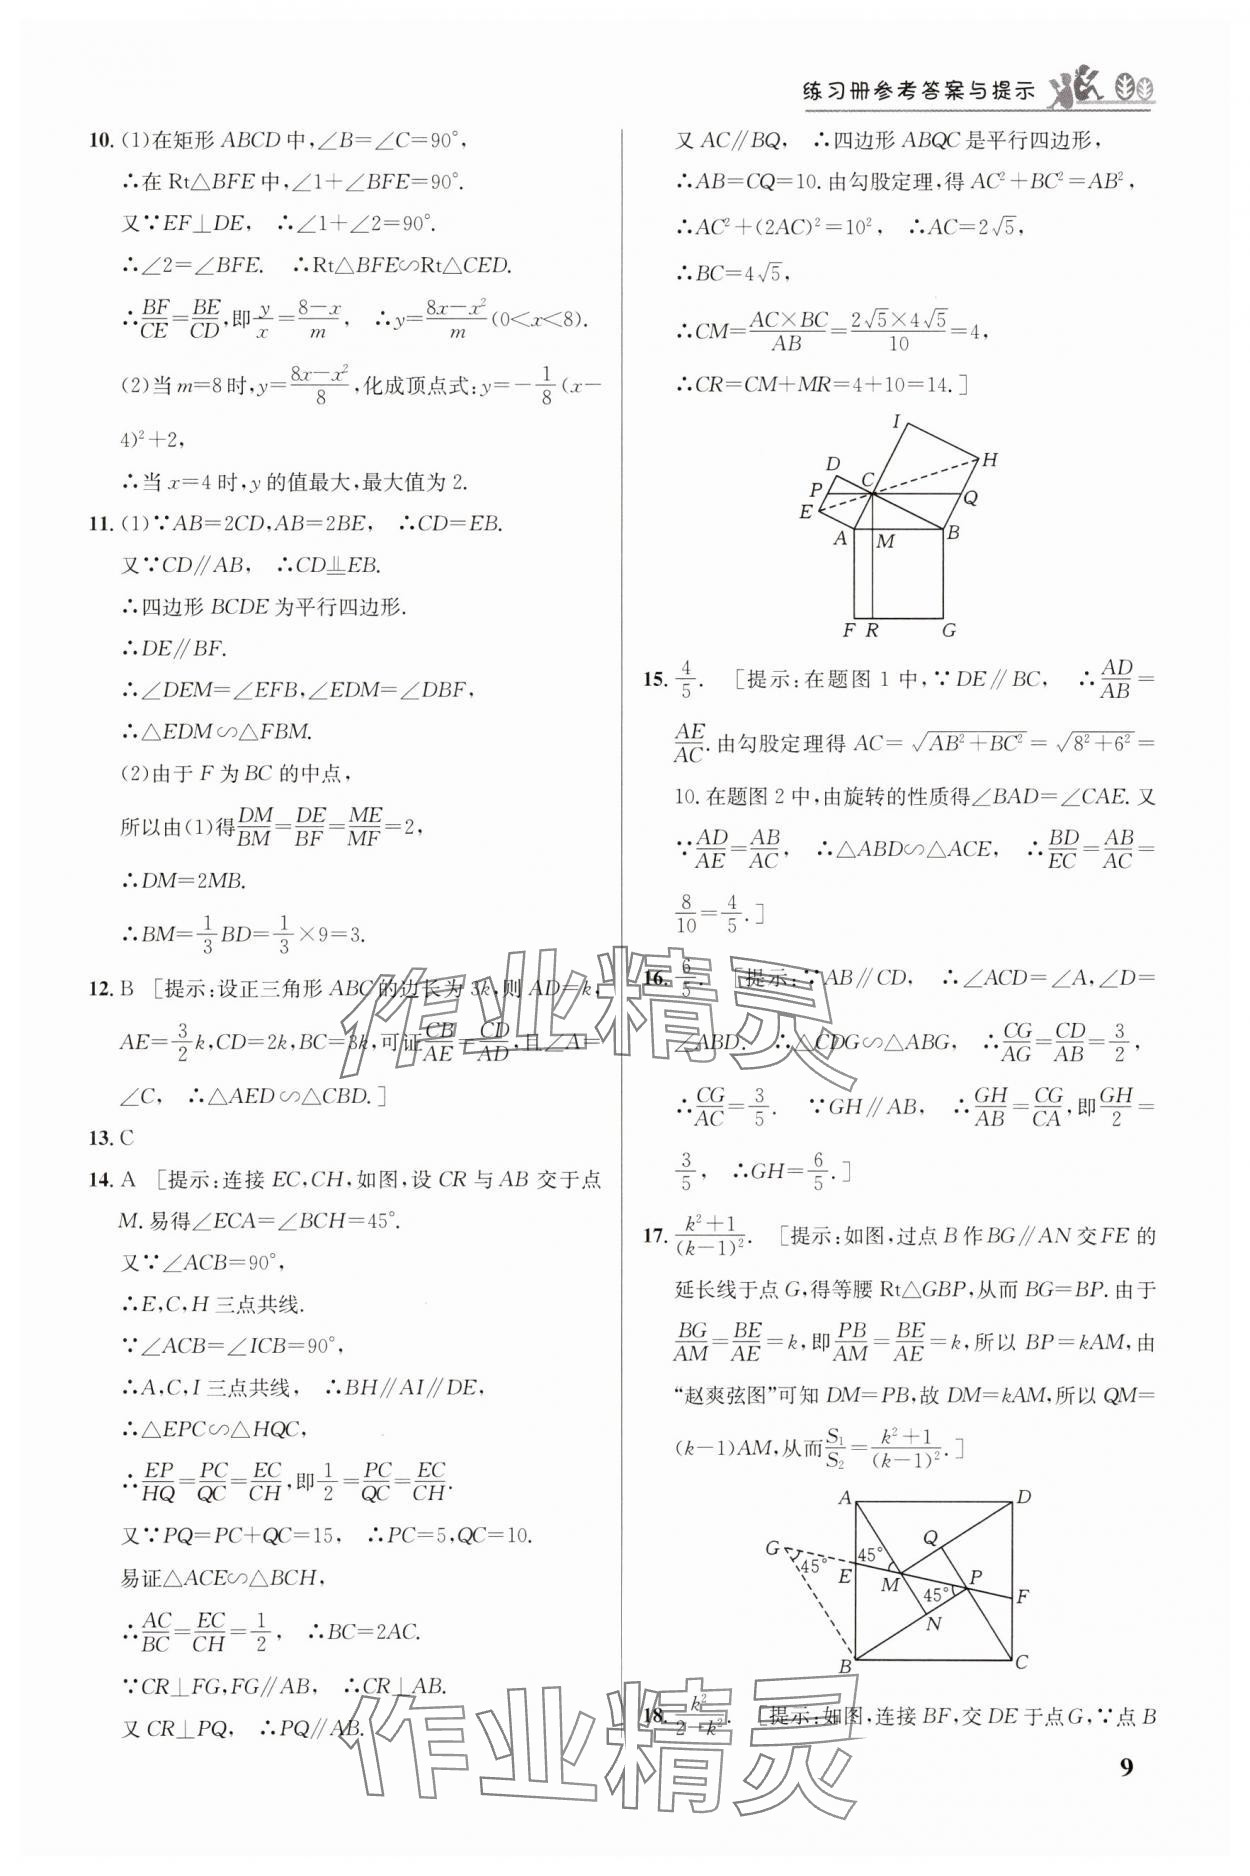 练习册参考答案与提示
10. (1)在矩形 ABCD 中,∠B=∠C=90°,
∴在 Rt△BFE 中,∠1+∠BFE=90°.
又∵EF⊥DE, ∴∠1+∠2=90°.
∴∠2=∠BFE. ∴Rt△BFE∽Rt△CED.
∴BF/CE=BE/CD,即y/x=(8-x)/m, ∴y=(8x-x²)/m(0<x<8).
(2)当 m=8时,y=(8x-x²)/8,化成顶点式:y=-1/8(x-
4)²+2,
∴当 x=4 时,y 的值最大,最大值为 2.
11. (1)∵AB=2CD,AB=2BE, ∴CD=EB.
又∵CD∥AB, ∴CD⫫EB.
∴四边形 BCDE 为平行四边形.
∴DE∥BF.
∴∠DEM=∠EFB,∠EDM=∠DBF,
∴△EDM∽△FBM.
(2)由于 F 为 BC 的中点,
所以由(1)得DM/BM=DE/BF=ME/MF=2,
∴DM=2MB.
∴BM=1/3BD=1/3×9=3.
12. B [提示:设正三角形 ABC 的边长为 3k,则 AD=k,
AE=3/2k,CD=2k,BC=3k,可证CB/AE=CD/AD,且∠A=
∠C, ∴△AED∽△CBD.]
13. C
14. A [提示:连接 EC,CH,如图,设 CR 与 AB 交于点
M.易得∠ECA=∠BCH=45°.
又∵∠ACB=90°,
∴E,C,H 三点共线.
∵∠ACB=∠ICB=90°,
∴A,C,I 三点共线, ∴BH∥AI∥DE,
∴△EPC∽△HQC,
∴EP/HQ=PC/QC=EC/CH,即1/2=PC/QC=EC/CH.
又∵PQ=PC+QC=15, ∴PC=5,QC=10.
易证△ACE∽△BCH,
∴AC/BC=EC/CH=1/2, ∴BC=2AC.
∵CR⊥FG,FG∥AB, ∴CR⊥AB.
又 CR⊥PQ, ∴PQ∥AB.
又 AC∥BQ, ∴四边形 ABQC 是平行四边形,
∴AB=CQ=10.由勾股定理,得 AC²+BC²=AB²,
∴AC²+(2AC)²=10², ∴AC=2√5,
∴BC=4√5,
∴CM=(AC×BC)/AB=(2√5×4√5)/10=4,
∴CR=CM+MR=4+10=14.]
I
H
D
C
P
Q
E
A M B
F R G
15. 4/5. [提示:在题图 1 中,∵DE∥BC, ∴AD/AB=
AE/AC.由勾股定理得 AC=√(AB²+BC²)=√(8²+6²)=
10.在题图 2 中,由旋转的性质得∠BAD=∠CAE.又
∵AD/AE=AB/AC, ∴△ABD∽△ACE, ∴BD/EC=AB/AC=
8/10=4/5.]
16. 6/5. [提示:∵AB∥CD, ∴∠ACD=∠A,∠D=
∠ABD. ∴△CDG∽△ABG, ∴CG/AG=CD/AB=3/2,
∴CG/AC=3/5. ∵GH∥AB, ∴GH/AB=CG/CA,即GH/2=
3/5, ∴GH=6/5.]
17. (k²+1)/(k-1)². [提示:如图,过点 B 作BG∥AN 交FE 的
延长线于点 G,得等腰 Rt△GBP,从而 BG=BP.由于
BG/AM=BE/AE=k,即PB/AM=BE/AE=k,所以 BP=kAM,由
“赵爽弦图”可知 DM=PB,故 DM=kAM,所以 QM=
(k-1)AM,从而S₁/S₂=(k²+1)/(k-1)².]
A D
Q
G 45° 45°
E M P
45° F
N
B C
18. k²/(2-k²). [提示:如图,连接 BF,交 DE 于点G,∵点 B
9
作业精灵
作业精灵